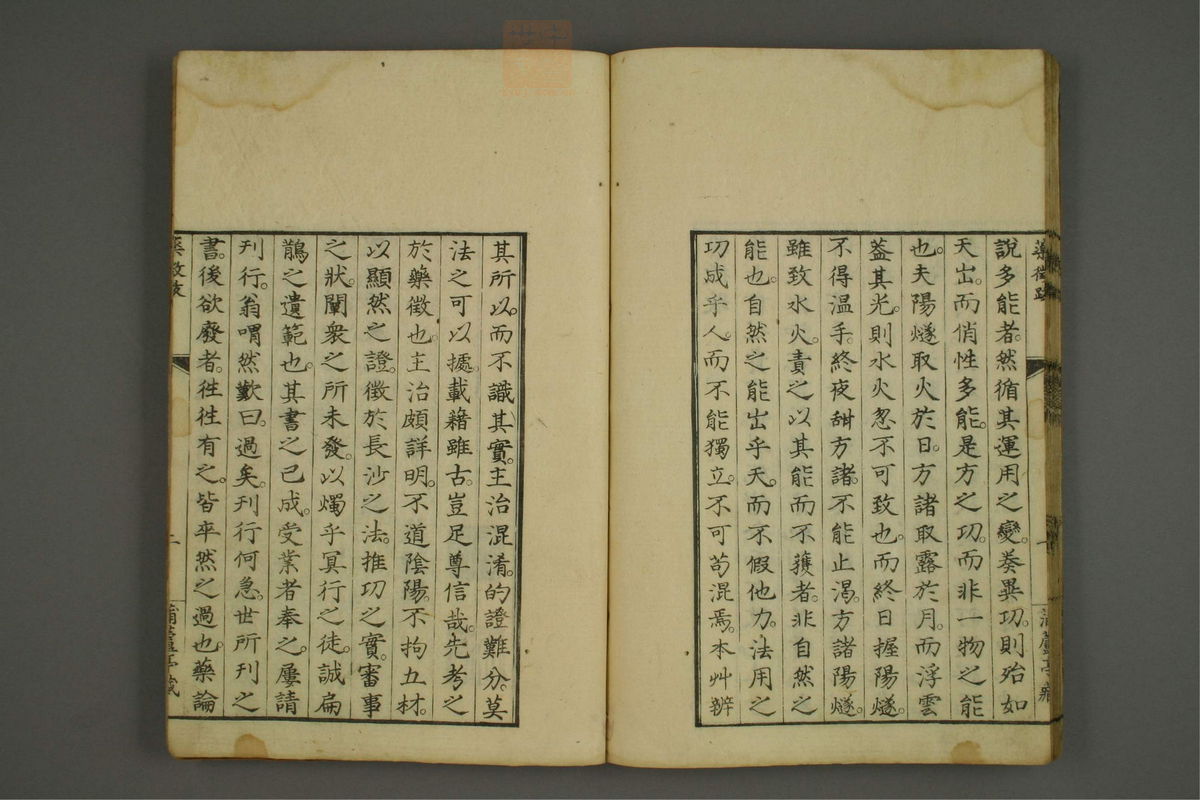 藥徵跋
說多能者。然循其運用之變。奏異功。則殆如
天出。而俏性多能。是方之功。而非一物之能
也。夫陽燧取火於日。方諸取露於月。而浮雲
蓋其光。則水火忽不可致也。而終日握陽燧。
不得温手。終夜甜方諸。不能止渴。方諸陽燧。
雖致水火。責之以其能而不獲者。非自然之
能也。自然之能出乎天。而不假他力。法用之
功成乎人。而不能獨立。不可苟混焉。本艸辨
其所以。而不識其實。主治混淆。的證難分。莫
法之可以據。載籍雖古。豈足尊信哉。先考之
於藥徵也。主治頗詳明。不道陰陽。不拘五材。
以顯然之證。徵於長沙之法。推功之實。審事
之狀。闡衆之所未發。以燭乎冥行之徒。誠扁
鵲之遺範也。其書之已成。受業者奉之。屢請
刊行。翁喟然歎曰。過矣。刊行何急。世所刊之
書。後欲廢者。徃徃有之。皆卒然之過也。藥論
二